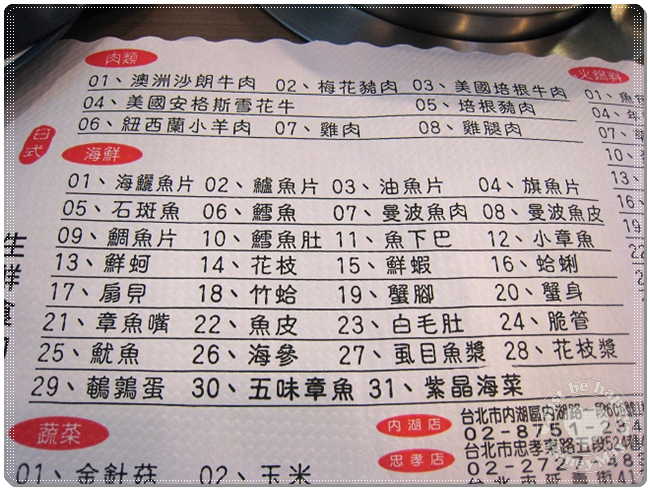 肉類
火鍋料
01、澳洲沙朗牛肉 02、梅花豬肉 03、美國培根牛肉
04、美國安格斯雪花牛 05、培根豬肉
06、紐西蘭小羊肉 07、雞肉 08、雞腿肉
日式
海鮮
01、海鱺魚片 02、鱸魚片 03、油魚片 04、旗魚片
05、石斑魚 06、鱈魚 07、曼波魚肉 08、曼波魚皮
09、鯛魚片 10、鱈魚肚 11、魚下巴 12、小章魚
13、鮮蚵 14、花枝 15、鮮蝦 16、蛤蜊
17、扇貝 18、竹蛤 19、蟹腳 20、蟹身
21、章魚嘴 22、魚皮 23、白毛肚 24、脆管
25、魷魚 26、海參 27、虱目魚漿 28、花枝漿
29、鵪鶉蛋 30、五味章魚 31、紫晶海菜
蔬菜
01、金針菇 02、玉米
內湖店
台北市內湖區內湖路一段
02-8751-234
忠孝店
台北市忠孝東路五段524
02-2727-48
台北市延壽街41